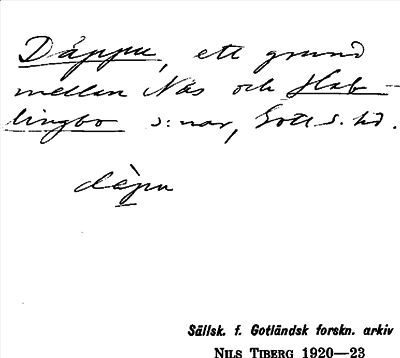 Dåppu, ett grund
mellan Näs och Hab-
lingbo s:nar, Gotl. S. hd.
dåpu
Sällsk. f. Gotländsk forskn. arkiv
NILS TIBERG 1920—23